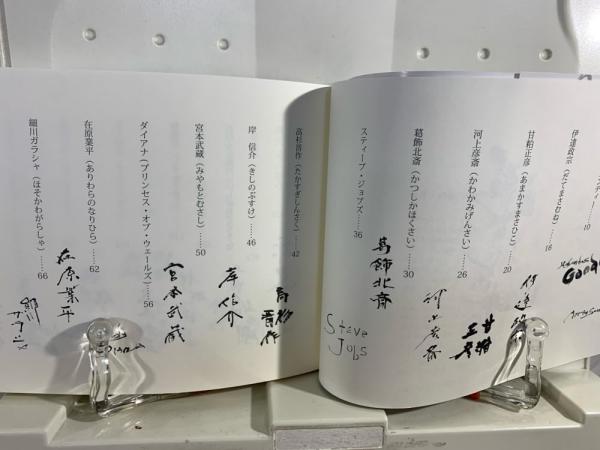 ンディ……10
Good
Andy
伊達政宗（だてまさむね）……16
伊達
甘粕正彦（あまかすまさひこ）……20
甘粕
正彦
河上彦斎（かわかみげんさい）……26
河上彦斎
葛飾北斎（かつしかほくさい）……30
葛飾北斎
スティーブ・ジョブズ……36
Steve
Jobs
高杉晋作（たかすぎしんさく）……42
高杉
晋作
岸　信介（きしのぶすけ）……46
岸信介
宮本武蔵（みやもとむさし）……50
宮本武蔵
ダイアナ（プリンセス・オブ・ウェールズ）……56
在原業平（ありわらのなりひら）……62
在原業平
細川ガラシャ（ほそかわがらしゃ）……66
細川
ガラシャ